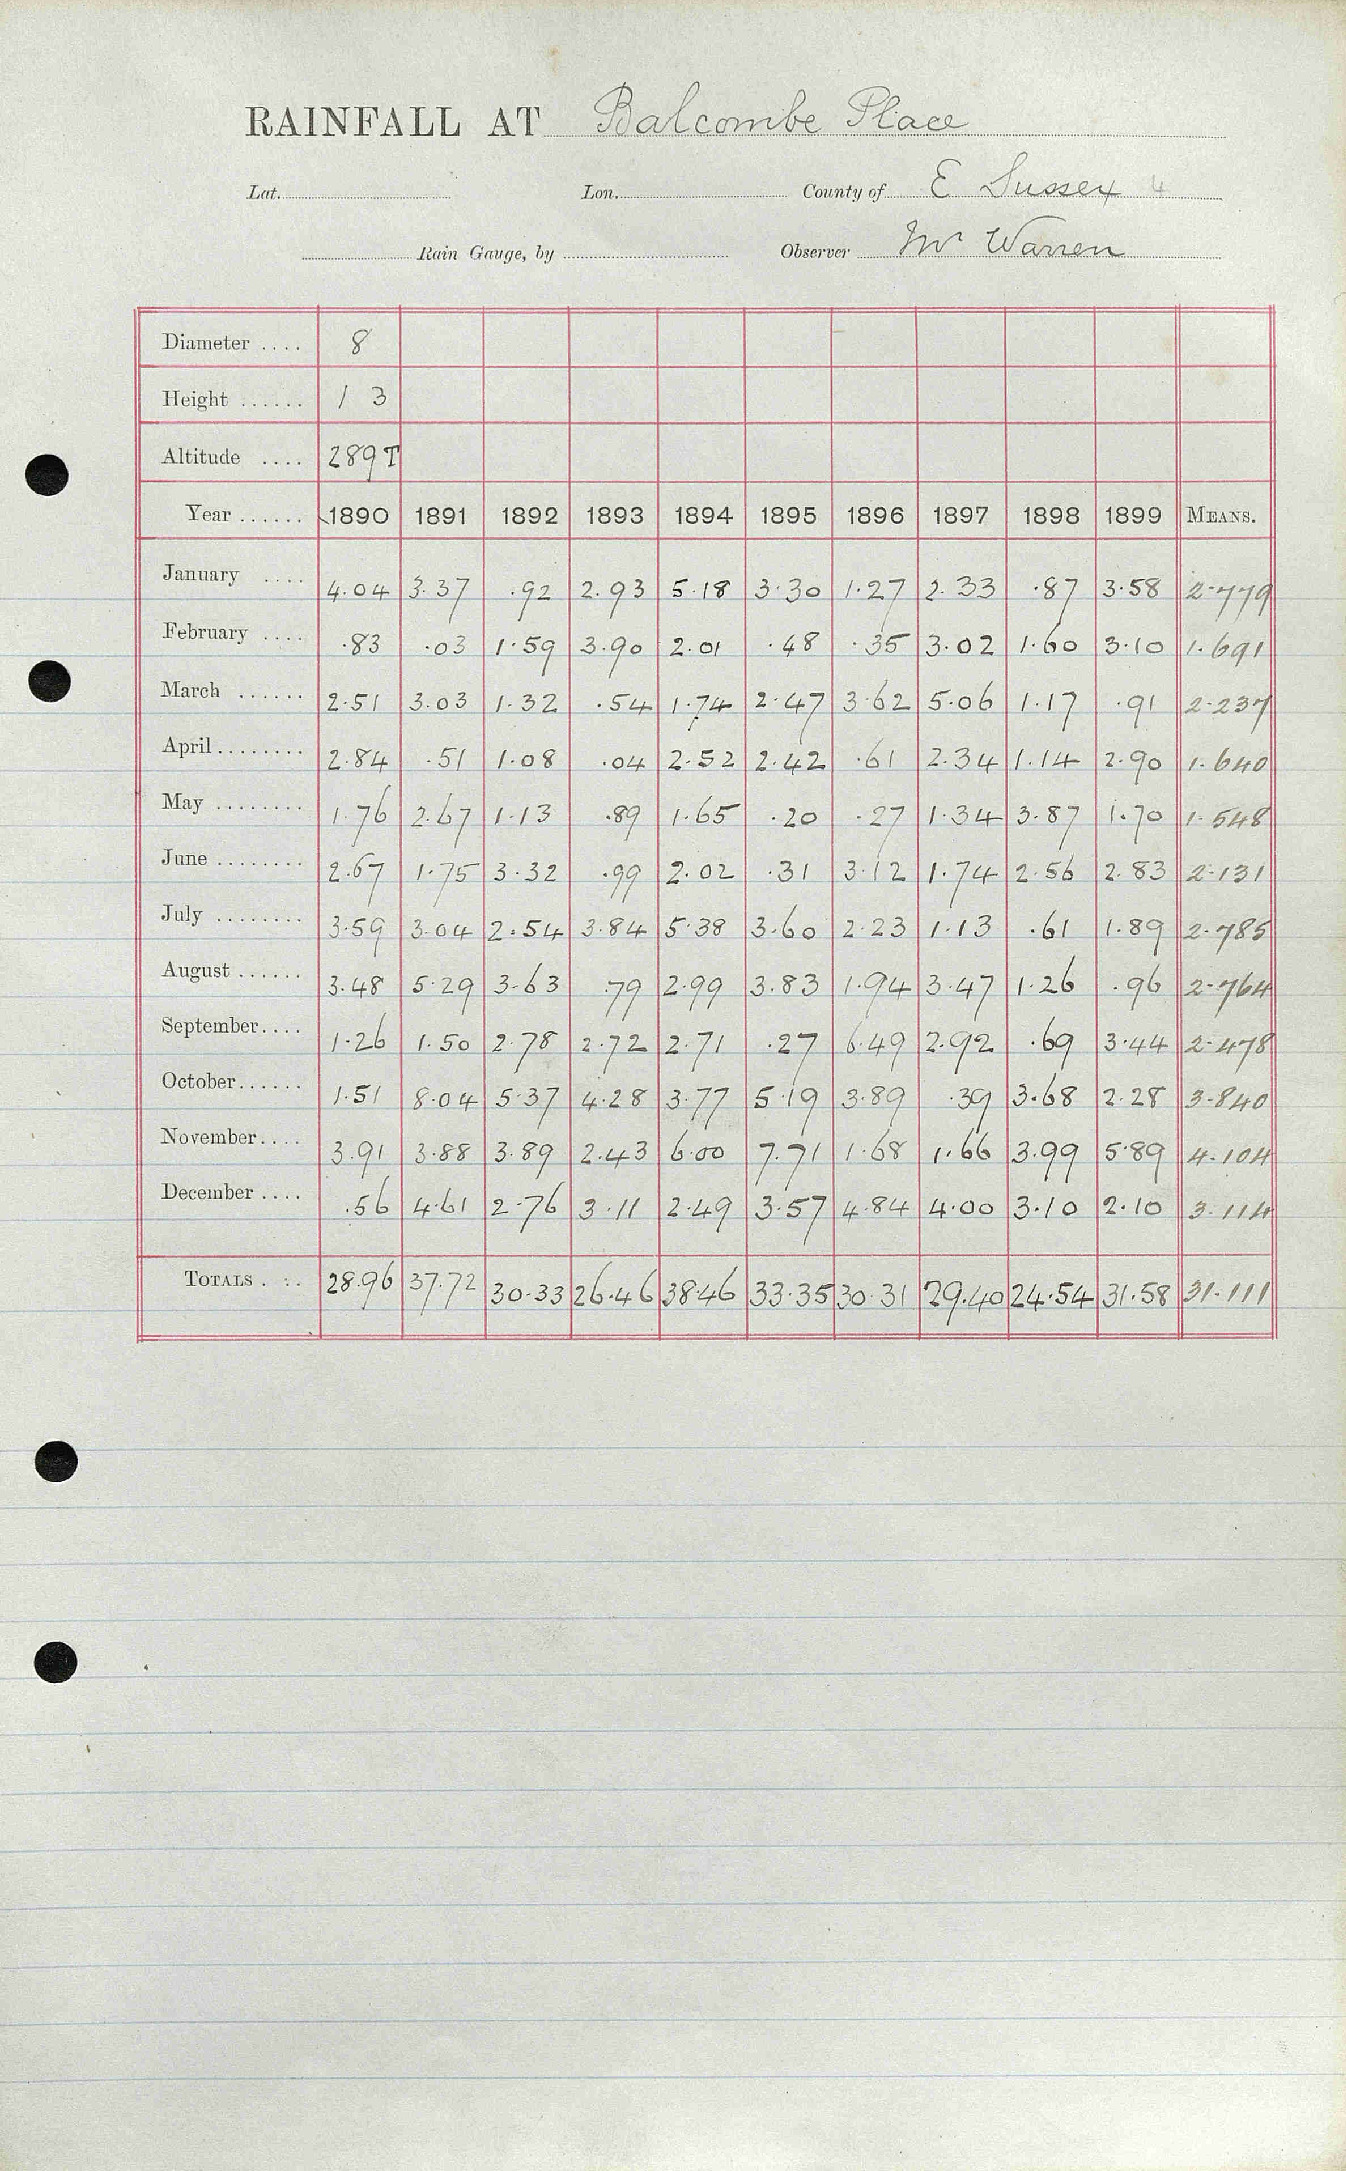 RAINFALL AT Balcombe Place
Lat. Lon. County of E Sussex 4
Rain Gauge, by Observer Mr Warren
Diameter .... 8
Height ...... 1 3
Altitude .... 289 T
Year ...... 1890 1891 1892 1893 1894 1895 1896 1897 1898 1899 MEANS.
January .... 4.04 3.37 .92 2.93 5.18 3.30 1.27 2.33 .87 3.58 2.779
February .... .83 .03 1.59 3.90 2.01 .48 .35 3.02 1.60 3.10 1.691
March ...... 2.51 3.03 1.32 .54 1.74 2.47 3.62 5.06 1.17 .91 2.237
April ........ 2.84 .51 1.08 .04 2.52 2.42 .61 2.34 1.14 2.90 1.640
May ........ 1.76 2.67 1.13 .89 1.65 .20 .27 1.34 3.87 1.70 1.548
June ........ 2.67 1.75 3.32 .99 2.02 .31 3.12 1.74 2.56 2.83 2.131
July ........ 3.59 3.04 2.54 3.84 5.38 3.60 2.23 1.13 .61 1.89 2.785
August ...... 3.48 5.29 3.63 .79 2.99 3.83 1.94 3.47 1.26 .96 2.764
September.... 1.26 1.50 2.78 2.72 2.71 .27 6.49 2.92 .69 3.44 2.478
October...... 1.51 8.04 5.37 4.28 3.77 5.19 3.89 .39 3.68 2.28 3.840
November.... 3.91 3.88 3.89 2.43 6.00 7.71 1.68 1.66 3.99 5.89 4.104
December .... .56 4.61 2.76 3.11 2.49 3.57 4.84 4.00 3.10 2.10 3.114
TOTALS . .. 28.96 37.72 30.33 26.46 38.46 33.35 30.31 29.40 24.54 31.58 31.111